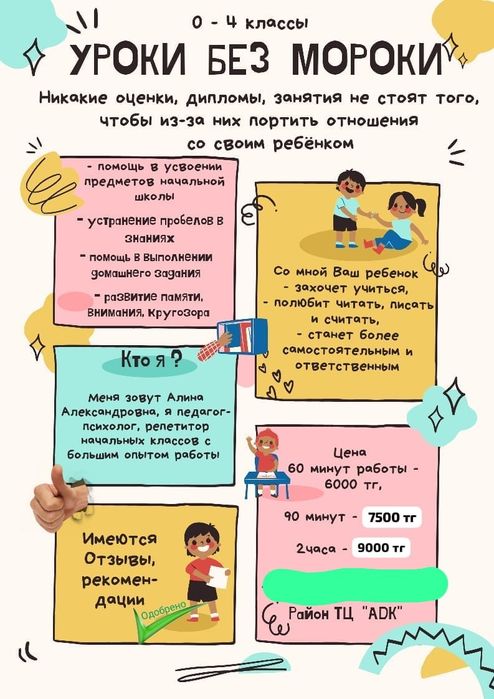 0 - 4 классы
УРОКИ БЕЗ МОРОКИ
Никакие оценки, дипломы, занятия не стоят того,
чтобы из-за них портить отношения
со своим ребёнком
- помощь в усвоении
предметов начальной
школы
- устранение пробелов в
знаниях
- помощь в выполнении
домашнего задания
- развитие памяти,
внимания, кругозора
Со мной Ваш ребенок
- захочет учиться,
- полюбит читать, писать
и считать,
- станет более
самостоятельным и
ответственным
Кто я ?
Меня зовут Алина
Александровна, я педагог-
психолог, репетитор
начальных классов с
большим опытом работы
Цена
60 минут работы -
6000 тг,
90 минут - 7500 тг
2часа - 9000 тг
Район ТЦ "ADK"
Имеются
Отзывы,
рекомен-
дации
Одобрено